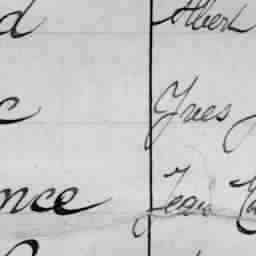 d Albert
c Yves
nce Jean